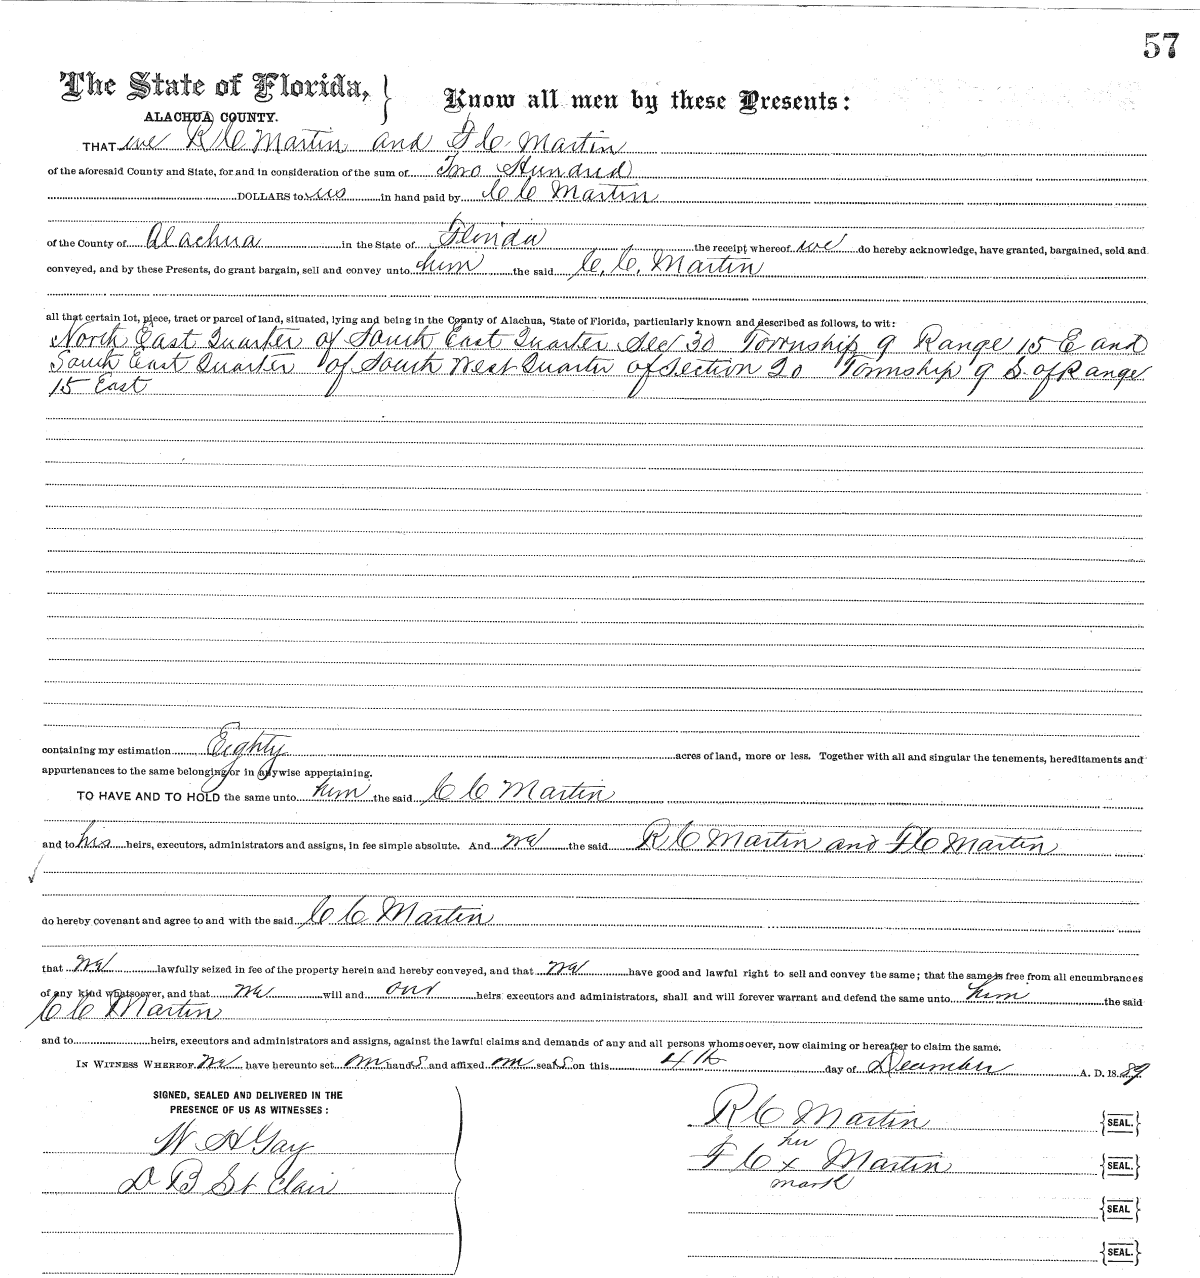 57
The State of Florida, } Know all men by these Presents:
ALACHUA COUNTY.
THAT we R C Martin and F C Martin
of the aforesaid County and State, for and in consideration of the sum of Two Hundred
DOLLARS to us in hand paid by C C Martin
of the County of Alachua in the State of Florida the receipt whereof we do hereby acknowledge, have granted, bargained, sold and
conveyed, and by these Presents, do grant bargain, sell and convey unto him the said C. C. Martin
all that certain lot, piece, tract or parcel of land, situated, lying and being in the County of Alachua, State of Florida, particularly known and described as follows, to wit:
North East Quarter of South East Quarter Sec 30 Township 9 Range 15 E and
South East Quarter of South West Quarter of Section 20 Township 9 S. of Range
15 East
containing my estimation Eighty acres of land, more or less. Together with all and singular the tenements, hereditaments and
appurtenances to the same belonging or in anywise appertaining.
TO HAVE AND TO HOLD the same unto him the said C C Martin
and to his heirs, executors, administrators and assigns, in fee simple absolute. And we the said R C Martin and F C Martin
do hereby covenant and agree to and with the said C C Martin
that we lawfully seized in fee of the property herein and hereby conveyed, and that we have good and lawful right to sell and convey the same; that the same is free from all encumbrances
of any kind whatsoever, and that we will and our heirs executors and administrators, shall and will forever warrant and defend the same unto him the said
C C Martin
and to heirs, executors and administrators and assigns, against the lawful claims and demands of any and all persons whomsoever, now claiming or hereafter to claim the same.
IN WITNESS WHEREOF we have hereunto set our hands and affixed our seals on this 4th day of December A. D. 1889
SIGNED, SEALED AND DELIVERED IN THE
PRESENCE OF US AS WITNESSES:
R C Martin {SEAL.}
W H Gay
her
F C x Martin {SEAL.}
mark
D B St Clair
{SEAL}
{SEAL.}